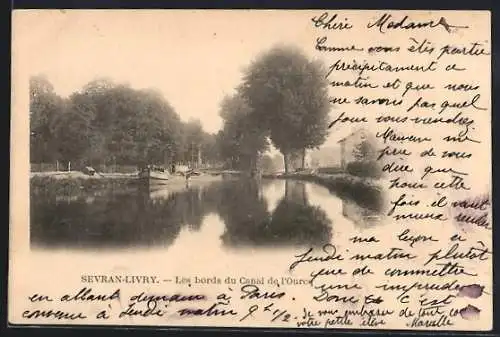 Chère Madame
Comme vous êtes partie
précipitament ce
matin et que nous
ne savons pas quel
jour vous viendrez
Maman me
prie de vous
dire que
pour cette
fois il vaut
mieux rendre
ma leçon plutôt
Jeudi matin que
que de commettre
une imprudence
SEVRAN-LIVRY. — Les bords du Canal de l'Ourcq
en allant demain à Paris. Donc c'est
convenu à Jeudi matin 9h 1/2
Je vous embrasse de tout cœur
votre petite élève Marcelle